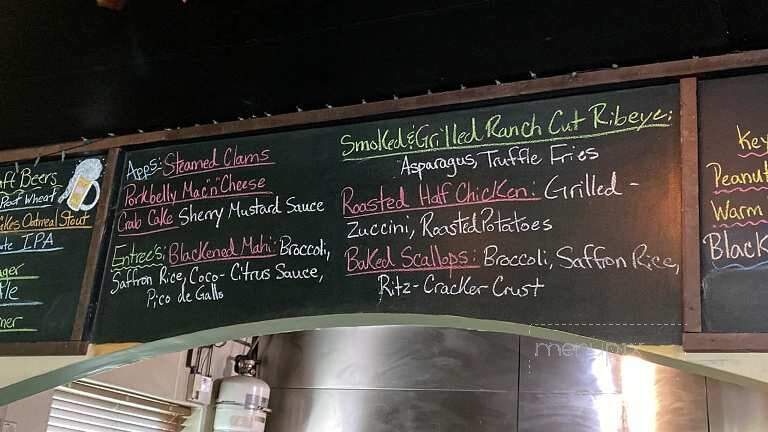 aft Beers
Wheat
kes Oatmeal Stout
ute IPA
ager
tle
ner
Apps: Steamed Clams
Porkbelly Mac"n"Cheese
Crab Cake Sherry Mustard Sauce
Entree's: Blackened Mahi: Broccoli,
Saffron Rice, Coco-Citrus Sauce,
Pico de Gallo
Smoked & Grilled Ranch Cut Ribeye:
Asparagus, Truffle Fries
Roasted Half Chicken: Grilled-
Zuccini, Roasted Potatoes
Baked Scallops: Broccoli, Saffron Rice,
Ritz-Cracker Crust
Key
Peanut
Warm
Black
menupix